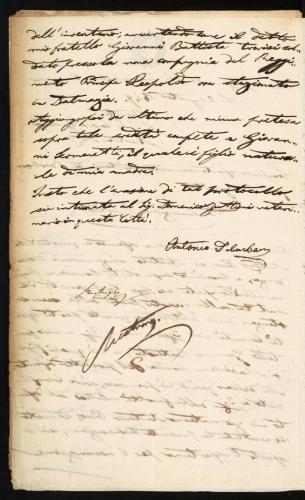 dell'inventario; avvertendo come il detto
mio fratello Giovanni Battista trovisi sol-
dato presso la nona compagnia del Reggi-
mento Principe Leopoldo ora stazionato
in Dalmazia.
Aggiungesi da ultimo che niuna pretesa
sopra tale eredità compete a Giovan-
ni il quale è figlio natura-
le di mia madre.
Insto che l'evasione di tal protocollo
sia intimata al Sig. Domenico veteri-
nario in questa Città.
Antonio